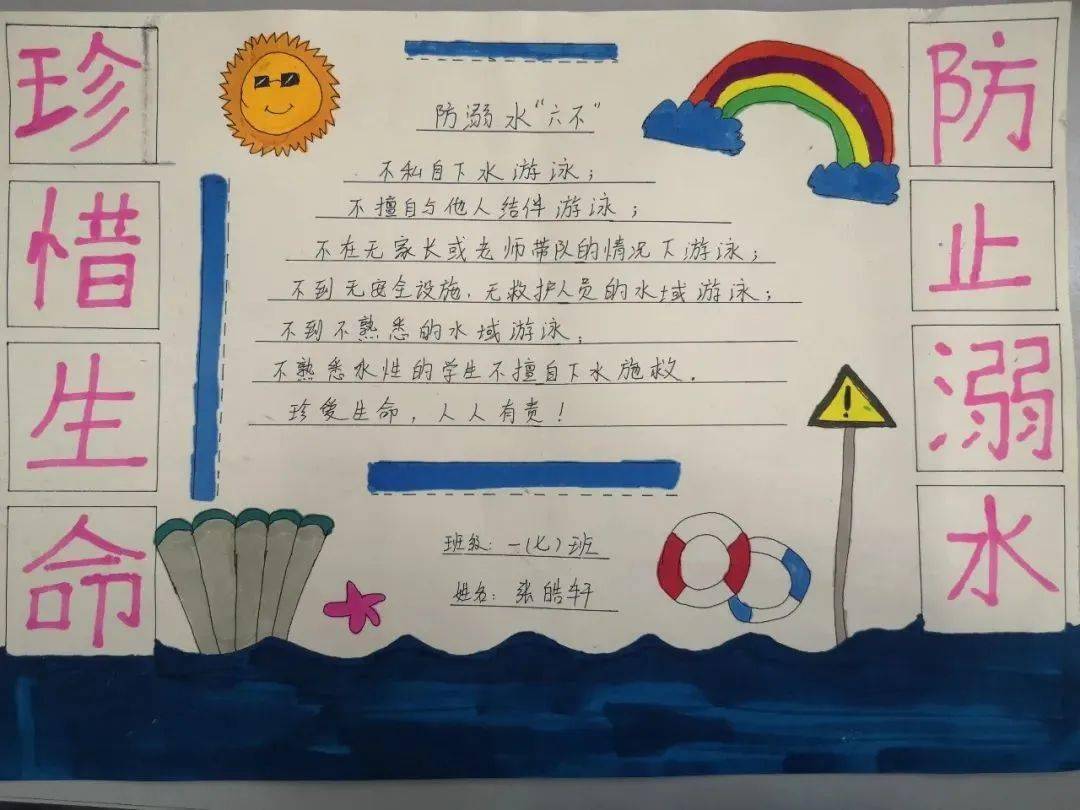 珍惜生命
防止溺水
防溺水“六不”
不私自下水游泳；
不擅自与他人结伴游泳；
不在无家长或老师带队的情况下游泳；
不到无安全设施、无救护人员的水域游泳；
不到不熟悉的水域游泳；
不熟悉水性的学生不擅自下水施救．
珍爱生命，人人有责！
班级：一（七）班
姓名：张皓轩